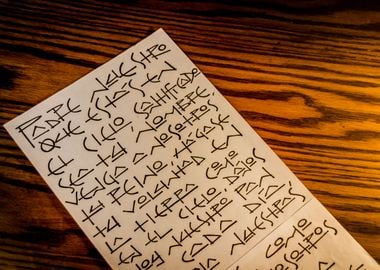 PADRE NUESTRO
QUE ESTAS EN
EL CIELO, SANTIFICADO
SEA TU NOMBRE,
VENGA A NOSOTROS
TU REINO, HAGASE
TU VOLUNTAD EN
LA TIERRA COMO
EL CIELO DANOS
HOY NUESTRO
CADA DIA
NUESTRAS
COMO
NOSOTROS